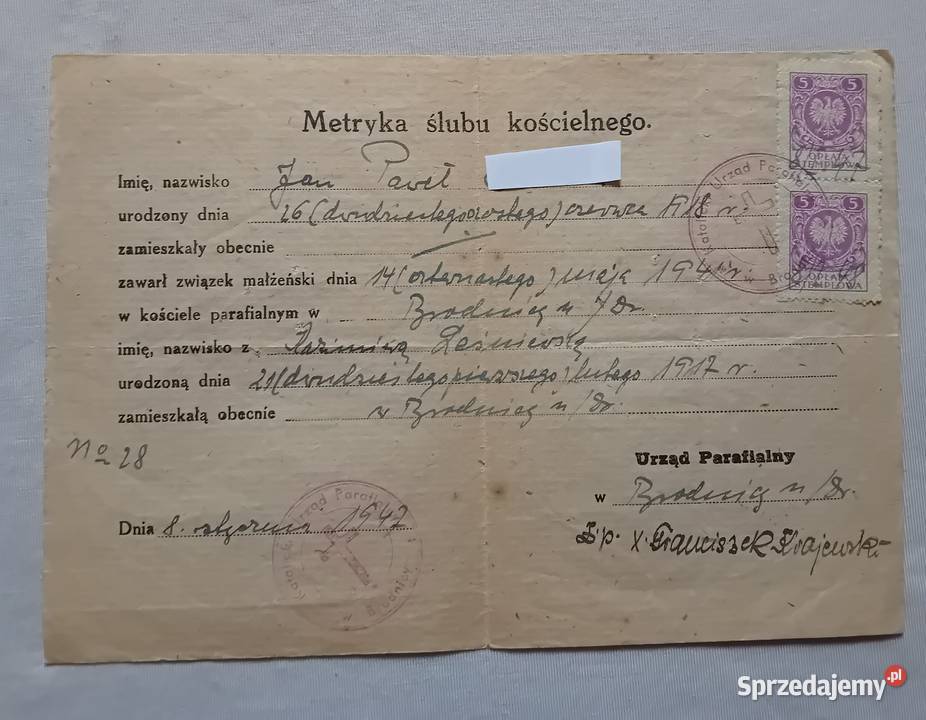 Metryka ślubu kościelnego.
5 5
OPŁATA
STEMPLOWA
5 5
OPŁATA
STEMPLOWA
Imię, nazwisko Jan Paweł
urodzony dnia 26 (dwudziestegoszóstego) czerwca 1918 r.
zamieszkały obecnie
zawarł związek małżeński dnia 14 (czternastego) maja 1941 r.
w kościele parafialnym w Brodnicy n/Dr.
imię, nazwisko z Kazimierą Leśniewską
urodzoną dnia 21 (dwudziestegopierwszego) lutego 1917 r.
zamieszkałą obecnie w Brodnicy n/Dr.
No 28
Urząd Parafialny
w Brodnicy n/Dr.
Dnia 8. stycznia 1947
X. Franciszek Krajewski
Urząd Parafialny
Urząd Parafialny
w Brodnicy
Sprzedajemy.pl